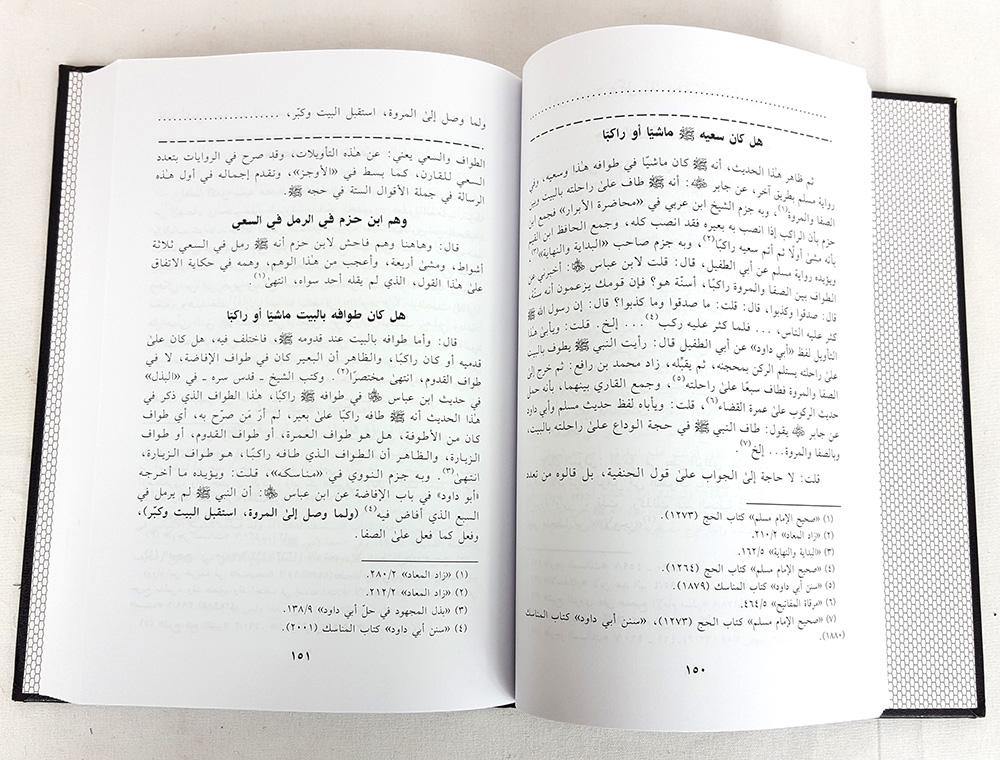 هل كان سعيه ﷺ ماشيًا أو راكبًا
ثم ظاهر هذا الحديث، أنه ﷺ كان ماشيًا في طوافه هذا وسعيه، وفي
رواية مسلم بطريق آخر، عن جابر ﵁: أنه ﷺ طاف على راحلته بالبيت وبين
الصفا والمروة(١)، وبه جزم الشيخ ابن عربي في «محاضرة الأبرار» فجمع ابن
حزم بأن الراكب إذا انصب به بعيره فقد انصب كله، وجمع الحافظ ابن القيم
بأنه مشى أولًا ثم أتم سعيه راكبًا(٢)، وبه جزم صاحب «البداية والنهاية»(٣)،
ويؤيده رواية مسلم عن أبي الطفيل، قال: قلت لابن عباس ﵄: أخبرني عن
الطواف بين الصفا والمروة راكبًا، أسنّة هو؟ فإن قومك يزعمون أنه سنّة،
قال: صدقوا وكذبوا، قال: قلت: ما صدقوا وما كذبوا؟ قال: إن رسول الله ﷺ
كثر عليه الناس، ... فلما كثر عليه ركب(٤) ... إلخ. قلت: ويأبى هذا
التأويل لفظ «أبي داود» عن أبي الطفيل قال: رأيت النبي ﷺ يطوف بالبيت
على راحلته يستلم الركن بمحجنه، ثم يقبِّله، زاد محمد بن رافع: ثم خرج إلى
الصفا والمروة فطاف سبعًا على راحلته(٥)، وجمع القاري بينهما، بأنه حمل
حديث الركوب على عمرة القضاء(٦)، قلت: ويأباه لفظ حديث مسلم وأبي داود
عن جابر ﵁ يقول: طاف النبي ﷺ في حجة الوداع على راحلته بالبيت،
وبالصفا والمروة... إلخ(٧).
قلت: لا حاجة إلى الجواب على قول الحنفية، بل قالوه من تعدد
(١) «صحيح الإمام مسلم» كتاب الحج (١٢٧٣).
(٢) «زاد المعاد» ٢١٠/٢.
(٣) «البداية والنهاية» ١٦٢/٥.
(٤) «صحيح الإمام مسلم» كتاب الحج (١٢٦٤).
(٥) «سنن أبي داود» كتاب المناسك (١٨٧٩)
(٦) «مرقاة المفاتيح» ٤٦٤/٥.
(٧) «صحيح الإمام مسلم» كتاب الحج (١٢٧٣)، «سنن أبي داود» كتاب المناسك
(١٨٨٠).
١٥٠
ولما وصل إلى المروة، استقبل البيت وكبّر، ........................
الطواف والسعي يعني: عن هذه التأويلات، وقد صرح في الروايات بتعدد
السعي للقارن، كما بسط في «الأوجز»، وتقدم إجماله في أول هذه
الرسالة في جملة الأقوال الستة في حجه ﷺ.
وهم ابن حزم في الرمل في السعي
قال: وهاهنا وهم فاحش لابن حزم أنه ﷺ رمل في السعي ثلاثة
أشواط، ومشى أربعة، وأعجب من هذا الوهم، وهمه في حكاية الاتفاق
على هذا القول، الذي لم يقله أحد سواه، انتهى(١).
هل كان طوافه بالبيت ماشيًا أو راكبًا
قال: وأما طوافه بالبيت عند قدومه ﷺ، فاختلف فيه، هل كان على
قدميه أو كان راكبًا، والظاهر أن البعير كان في طواف الإفاضة، لا في
طواف القدوم، انتهى مختصرًا(٢). وكتب الشيخ ـ قدس سره ـ في «البذل»
في حديث ابن عباس ﵄ في طوافه ﷺ راكبًا، هذا الطواف الذي ذكر في
هذا الحديث أنه ﷺ طافه راكبًا على بعير، لم أرَ مَن صرّح به، أي طواف
كان من الأطوفة، هل هو طواف العمرة، أو طواف القدوم، أو طواف
الزيارة، والظاهر أن الطواف الذي طافه راكبًا، هو طواف الزيارة،
انتهى(٣). وبه جزم النووي في «مناسكه»، قلت: ويؤيده ما أخرجه
«أبو داود» في باب الإفاضة عن ابن عباس ﵄: أن النبي ﷺ لم يرمل في
السبع الذي أفاض فيه(٤) (ولما وصل إلى المروة، استقبل البيت وكبّر)،
وفعل كما فعل على الصفا.
(١) «زاد المعاد» ٢٨٠/٢.
(٢) «زاد المعاد» ٢١٢/٢.
(٣) «بذل المجهود في حلّ أبي داود» ١٣٨/٩.
(٤) «سنن أبي داود» كتاب المناسك (٢٠٠١).
١٥١